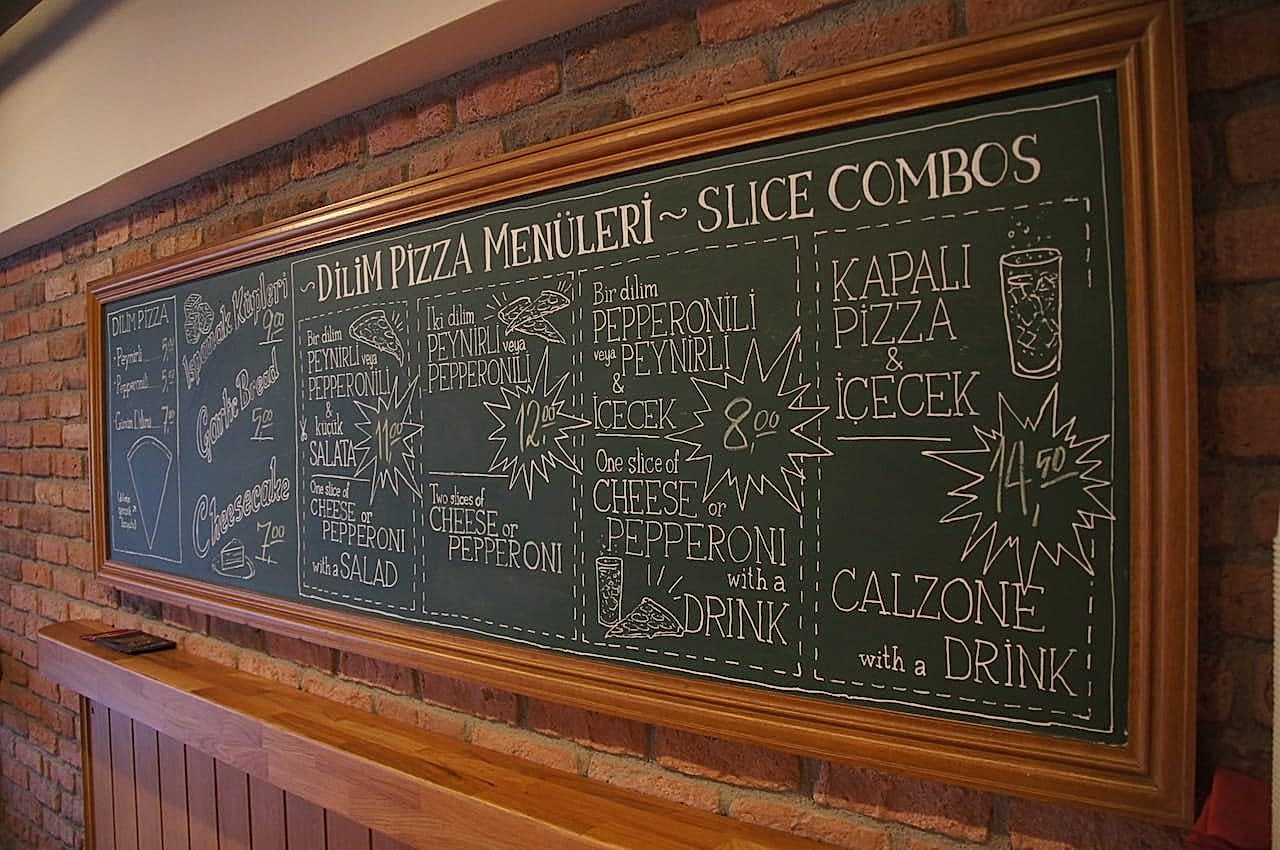 ~DİLİM PİZZA MENÜLERİ ~ SLICE COMBOS
DİLİM PİZZA
Peynirli
Pepperonili
Ispanak Küpleri
9.00
Garlic Bread
5.00
Cheesecake
7.00
Bir dilim
PEYNİRLİ veya
PEPPERONİLİ
&
küçük
SALATA
11.00
One slice of
CHEESE or
PEPPERONI
with a SALAD
İki dilim
PEYNİRLİ veya
PEPPERONİLİ
12.00
Two slices of
CHEESE or
PEPPERONI
Bir dilim
PEPPERONİLİ
veya PEYNİRLİ
&
İÇECEK
8.00
One slice of
CHEESE or
PEPPERONI
with a
DRİNK
KAPALI
PİZZA
&
İÇECEK
14,50
CALZONE
with a DRİNK